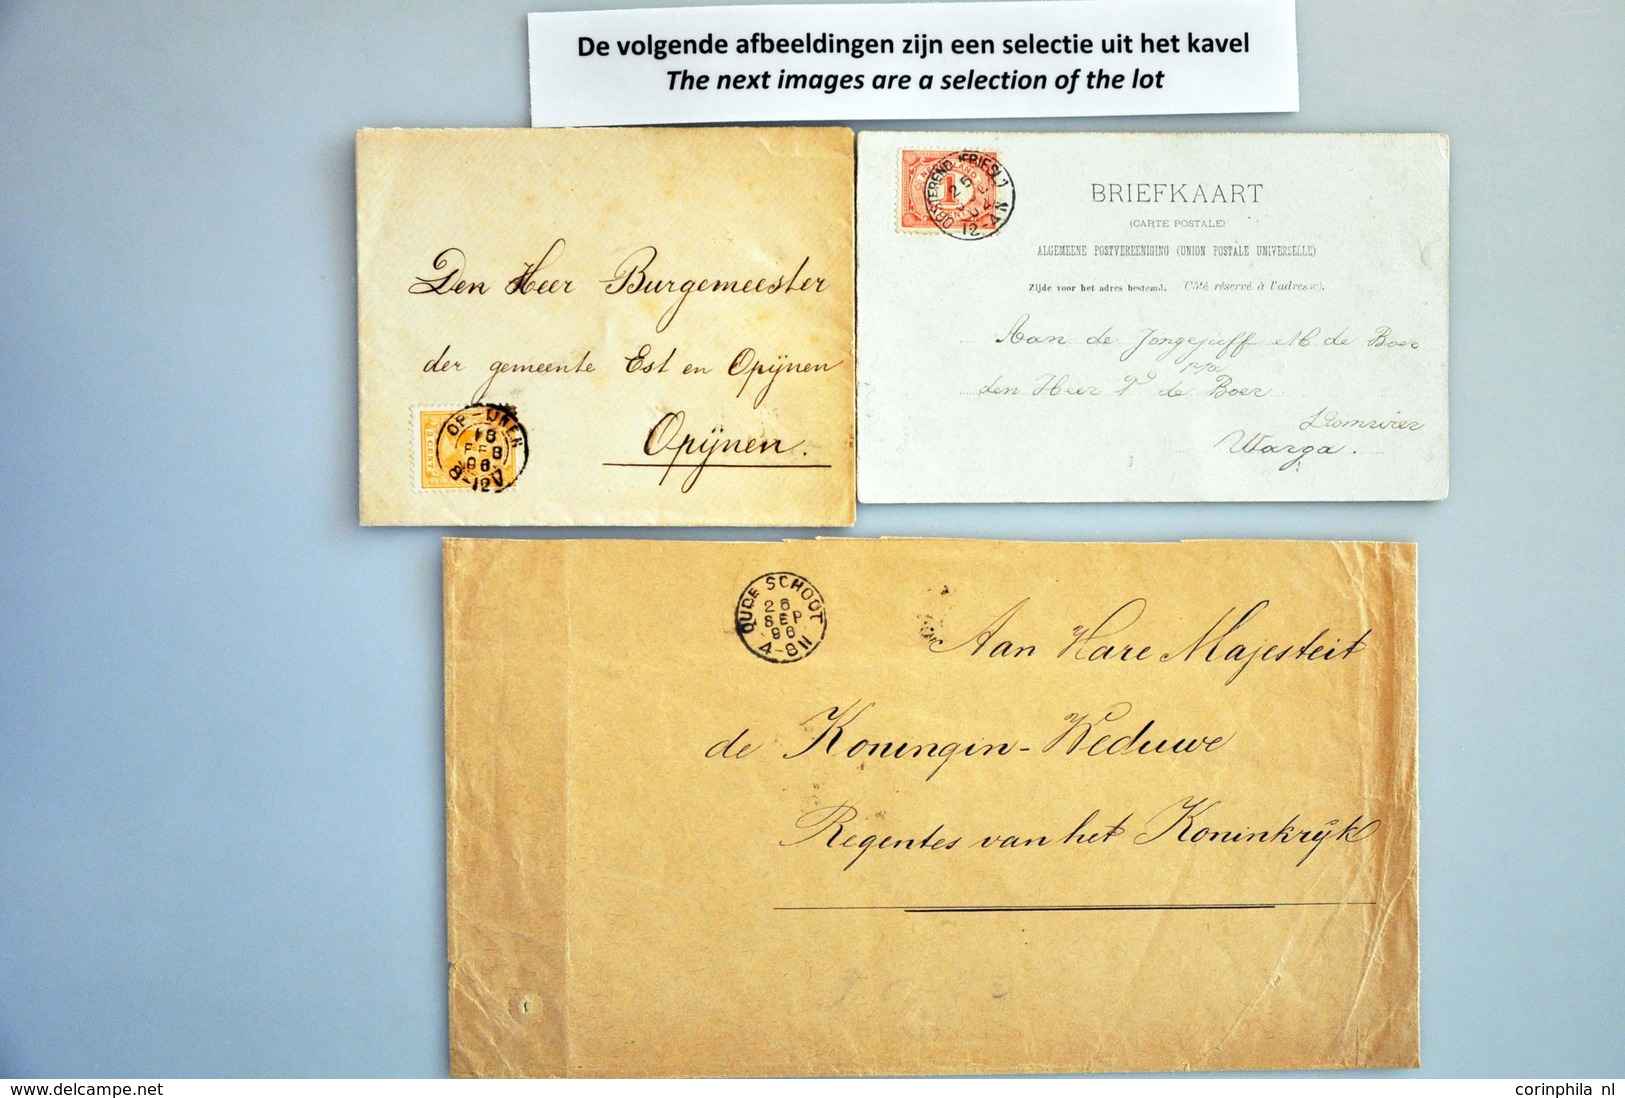 De volgende afbeeldingen zijn een selectie uit het kavel
The next images are a selection of the lot
Den Heer Burgemeester
der gemeente Est en Opijnen
Opijnen.
OP-IJNEN
8-12V
OOSTEREND (FRIESL)
25
12-4N
NEDERLAND
1
CENT
BRIEFKAART
(CARTE POSTALE)
ALGEMEENE POSTVEREENIGING (UNION POSTALE UNIVERSELLE)
Zijde voor het adres bestemd. (Côté réservé à l'adresse).
Aan de Jongejuff M. de Boer
p/a
den Heer P. de Boer
Warga.
OUDE SCHOOT
26
SEP
96
4-8N
Aan Hare Majesteit
de Koningin-Weduwe
Regentes van het Koninkrijk
delcampe.net
corinphila nl